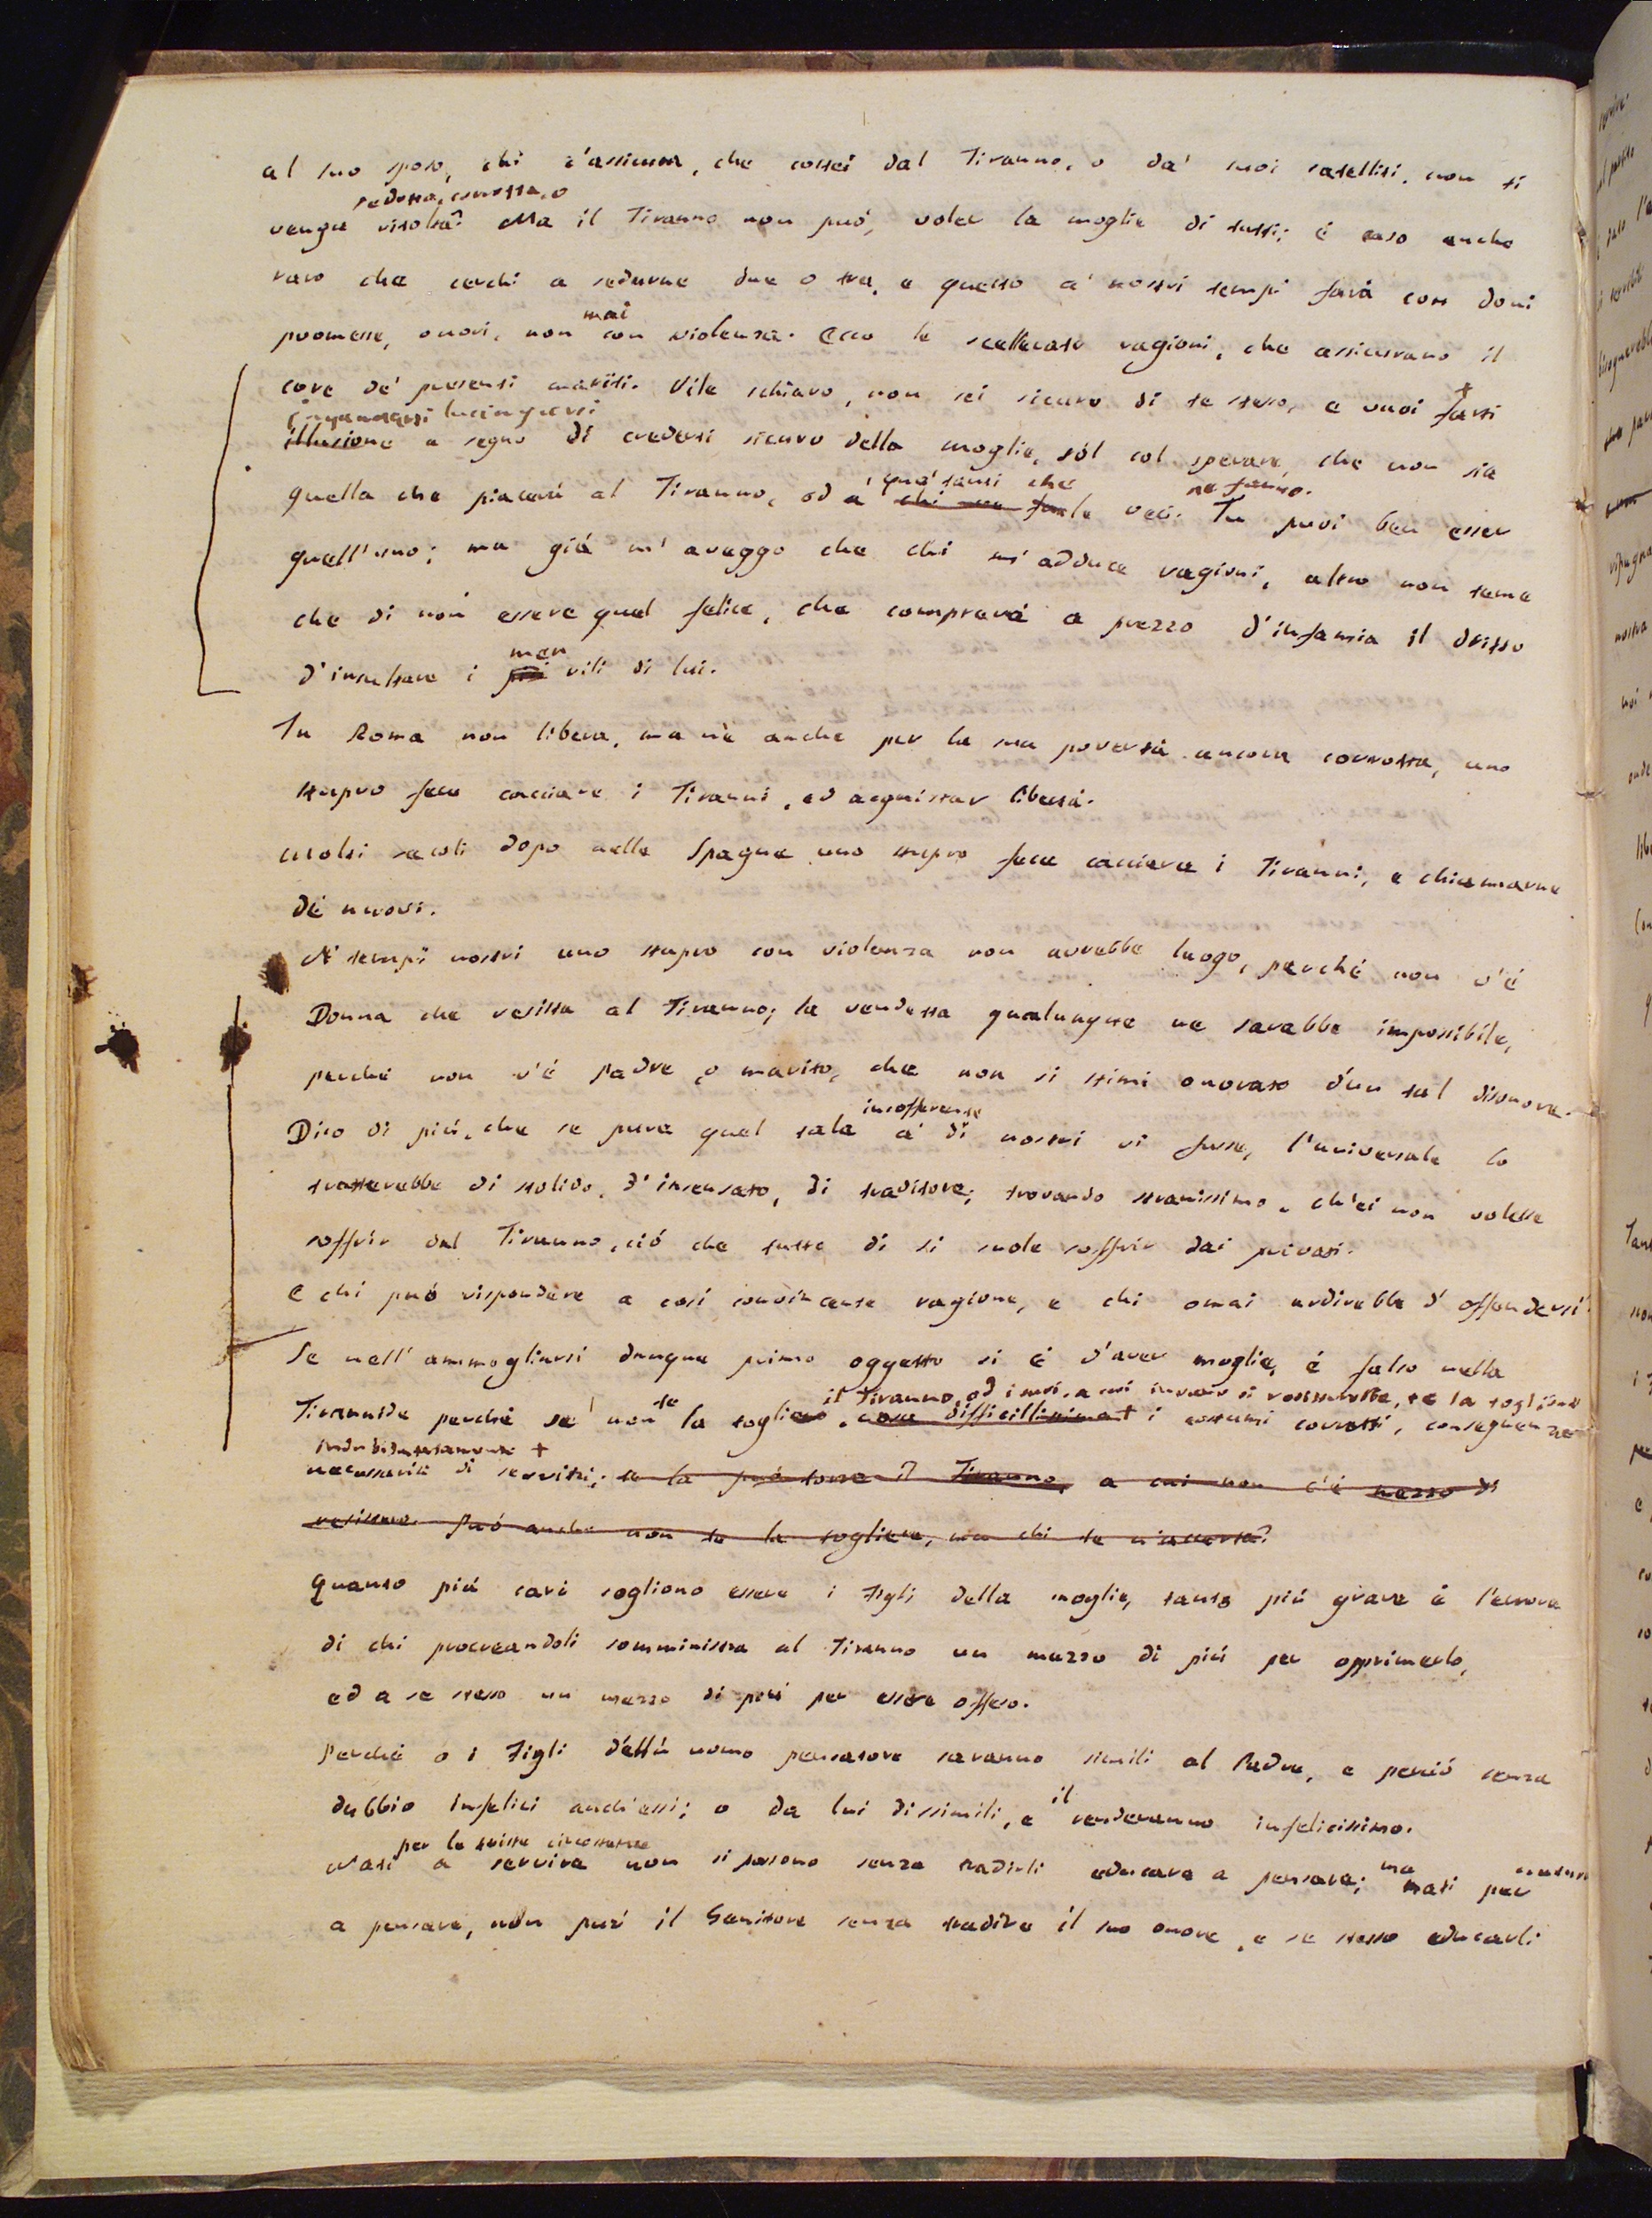 al suo sposo, chi t'assicura, che costei dal Tiranno, o da' suoi satelliti, non ti
sedotta, corrotta, o
venga ritolta? Ma il Tiranno non può, voler la moglie di tutti; è caso anche
raro che cerchi a sedurne due o tre, e questo a' nostri tempi farà con doni
mai
promesse, onori, non con violenza. Ecco le scellerate ragioni, che assicurano il
core de' presenti mariti. Vile schiavo, non sei sicuro di te stesso, e vuoi farti +
ingannarti lusingarti
illusione a segno di crederti sicuro della moglie, sol col sperare, che non sia
que' tanti che ne fanno.
quella che piacerà al Tiranno, od a' chi ne fa le veci. Tu puoi ben esser
quell'uno; ma già m'aveggo che chi m'adduce ragioni, altro non teme
che di non essere quel felice, che comprerà a prezzo d'infamia il dritto
men
d'insultare i più vili di lui.
In Roma non libera, ma nè anche per la sua povertà ancora corrotta, uno
stupro fece cacciare i Tiranni, ed acquistar libertà.
Molti secoli dopo nelle Spagne uno stupro fece cacciare i Tiranni, e chiamarne
de' nuovi.
A' tempi nostri uno stupro con violenza non avrebbe luogo, perchè non v'è
Donna che resista al Tiranno; la vendetta qualunque ne sarebbe impossibile,
perchè non v'è padre, o marito, che non si stimi onorato d'un tal disonore.
insofferente
Dico di più, che se pure quel tale a' dì nostri vi fosse, l'universale lo
tratterebbe di stolido, d'insensato, di traditore; trovando stranissimo, ch'ei non volesse
soffrir dal Tiranno, ciò che tutto dì si suole soffrir dai privati.
E chi può rispondere a così convincente ragione, e chi omai ardirebbe d'offendersi?
Se nell'ammogliarsi dunque primo oggetto si è d'aver moglie, è falso nella
te il Tiranno, od i suoi, a cui invan si resisterebbe, te la togliono
Tirannide perchè se non la togliere, cosa difficillima + i costumi corrotti, conseguenze
indubitatamente +
necessarie di servitù; te la può torre il Tiranno, a cui non c'è mezzo di
resistere. Può anche non te la togliere, ma chi te n'accerta?
Quanto più cari sogliono essere i Figli della moglie, tanto più grave è l'errore
di chi procreandoli somministra al Tiranno un mezzo di più per opprimerlo,
ed a se stesso un mezzo di più per essere offeso.
Perchè o i Figli dell'uomo pensatore saranno simili al Padre, e perciò senza
il
dubbio infelici anch'essi; o da lui dissimili, e renderanno infelicissimo.
per le triste circostanze
Nati a servire non si possono senza tradirli educare a pensare; ma nati per
a pensare, non può il Genitore senza tradire il suo onore, e se stesso educarli